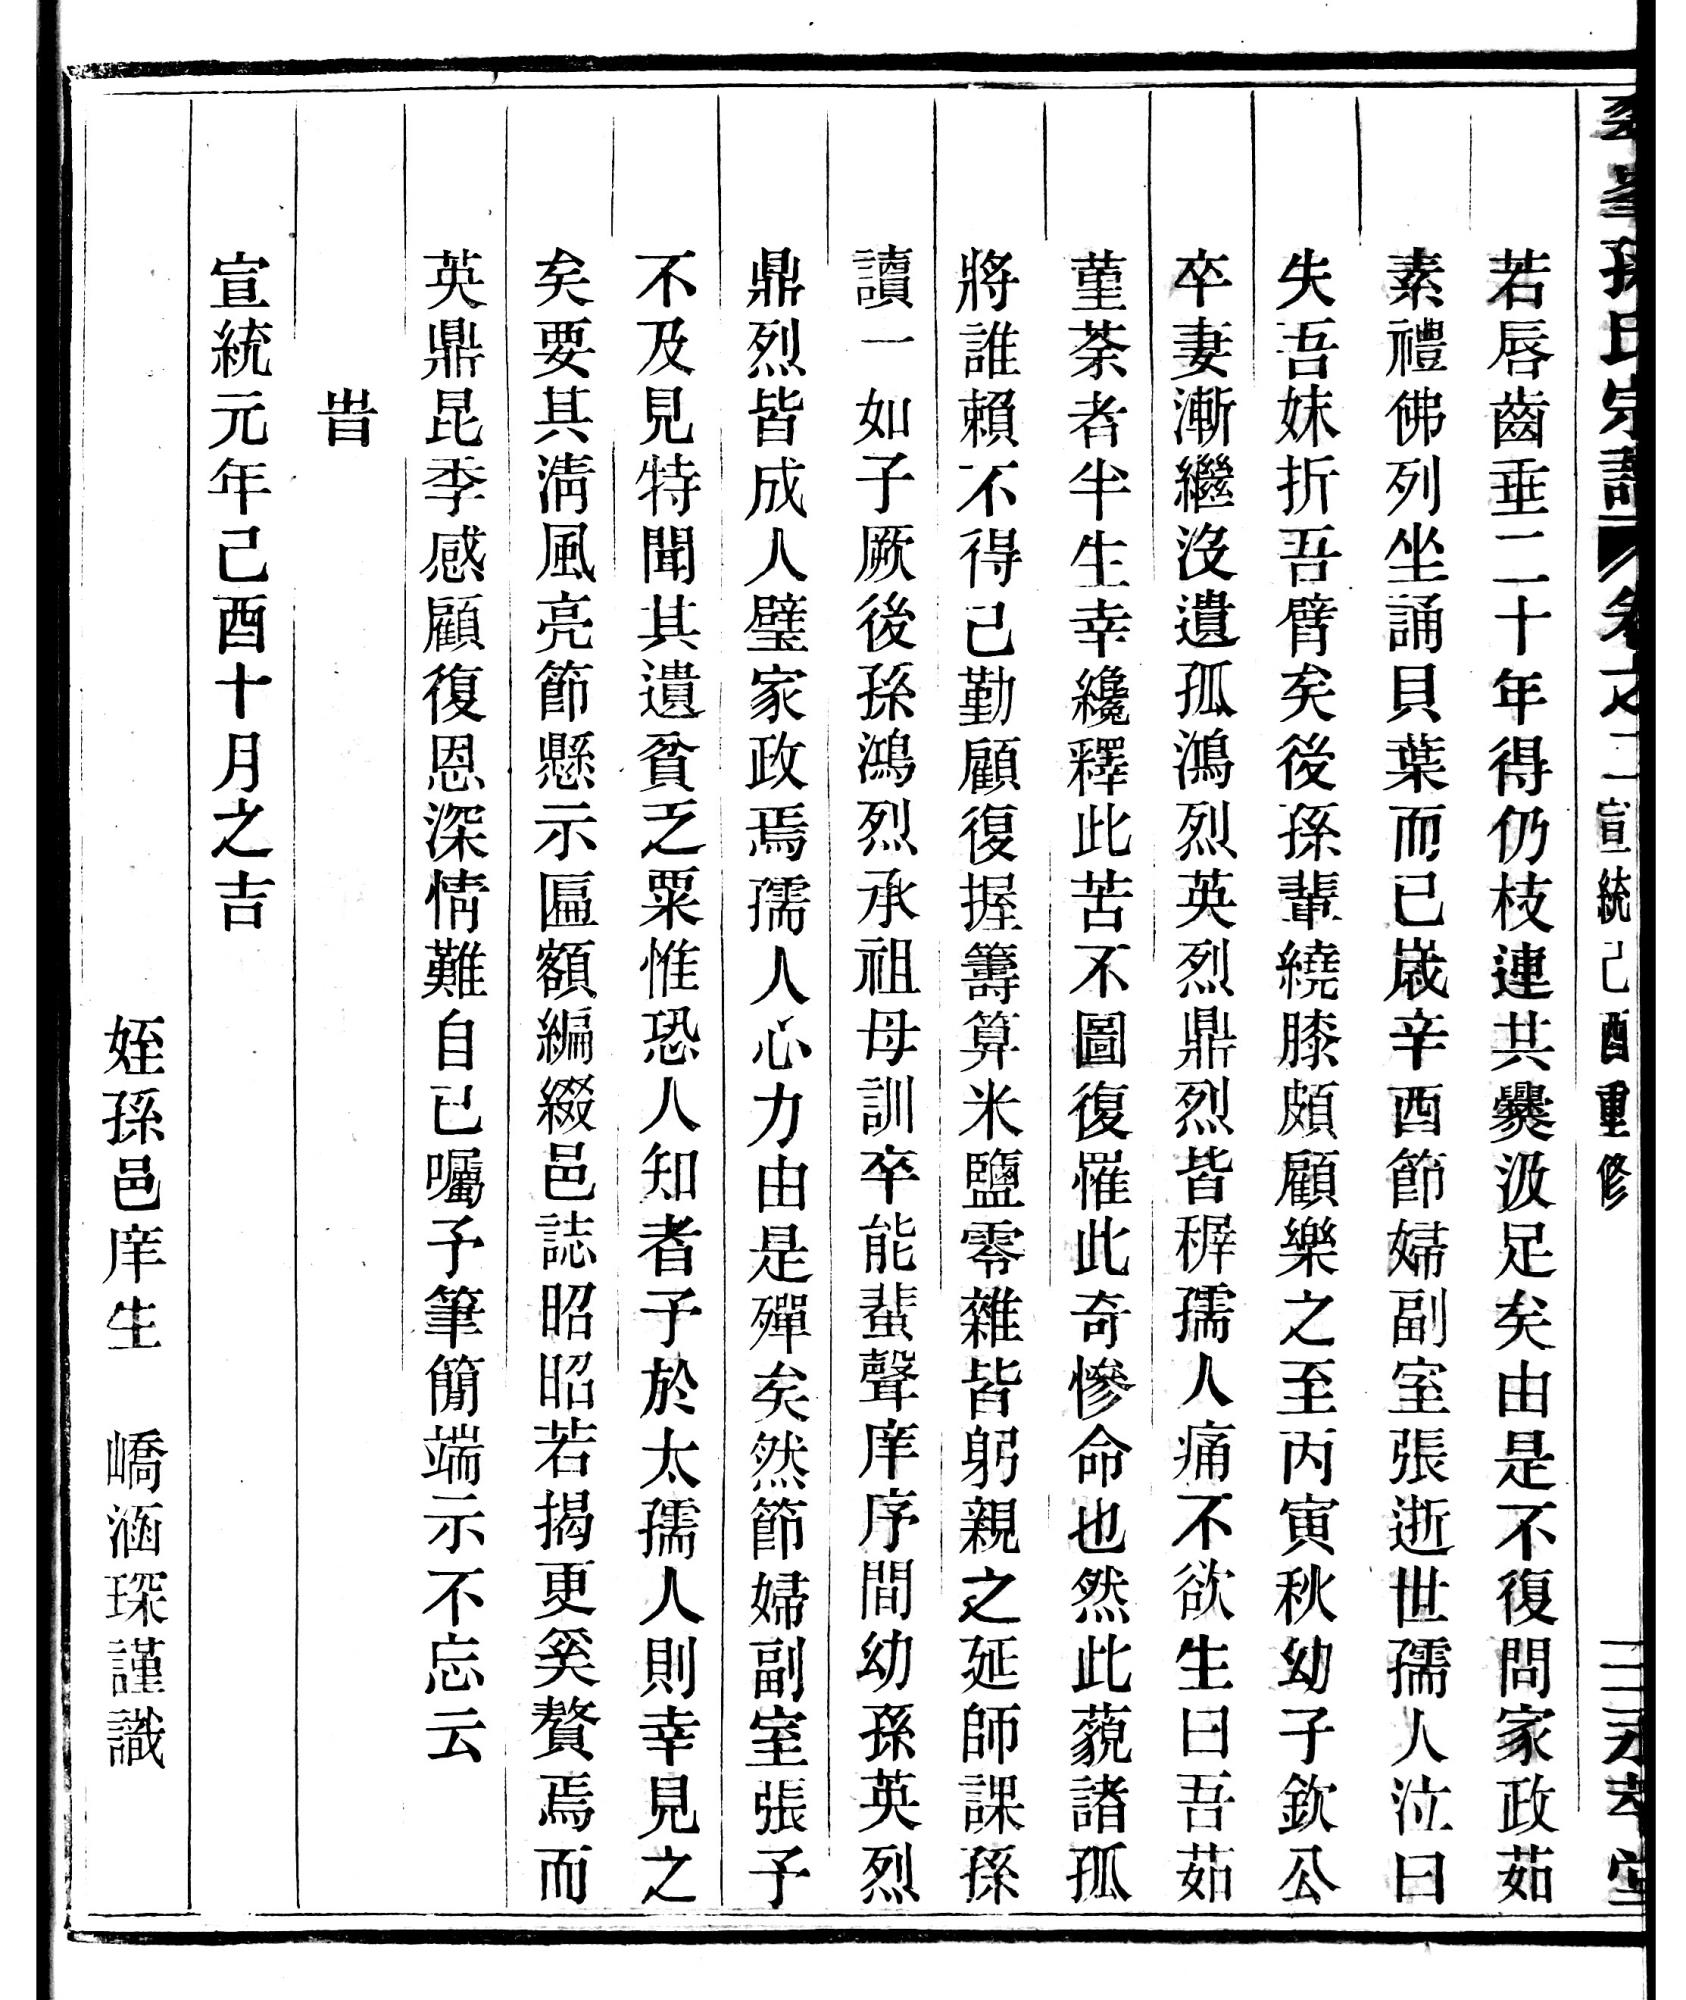 孫氏宗譜 卷之二 宣統己酉重修 三 永孝堂
若唇齒垂二十年得仍枝連共爨汲足矣由是不復問家政茹
素禮佛列坐誦貝葉而已歲辛酉節婦副室張逝世孺人泣曰
失吾妹折吾臂矣後孫輩繞膝頗顧樂之至丙寅秋幼子欽公
卒妻漸繼沒遺孤鴻烈英烈鼎烈皆稺孺人痛不欲生曰吾茹
菫荼者半生幸纔釋此苦不圖復罹此奇慘命也然此藐諸孤
將誰賴不得已勤顧復握籌算米鹽零雜皆躬親之延師課孫
讀一如子厥後孫鴻烈承祖母訓卒能蜚聲庠序間幼孫英烈
鼎烈皆成人璧家政焉孺人心力由是殫矣然節婦副室張予
不及見特聞其遺貧乏粟惟恐人知者予於太孺人則幸見之
矣要其淸風亮節懸示匾額編綴邑誌昭昭若揭更奚贅焉而
英鼎昆季感顧復恩深情難自已囑予筆簡端示不忘云
旹
宣統元年己酉十月之吉
姪孫邑庠生 嶠涵琛謹識